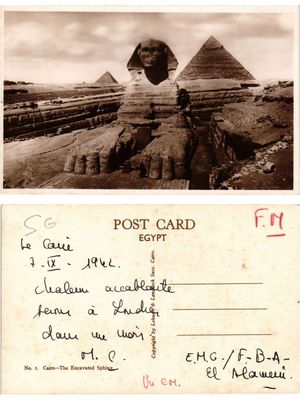 SG
POST CARD
EGYPT
F.M
Le Caire
7-IX-1942
chaleur accablante
serons à Londres
dans un mois.
M. C.
E.M.G./F-B-A-
El Alamein
No. 1. Cairo—The Excavated Sphinx
Copyright by Lehnert & Landrock Succ. Cairo.